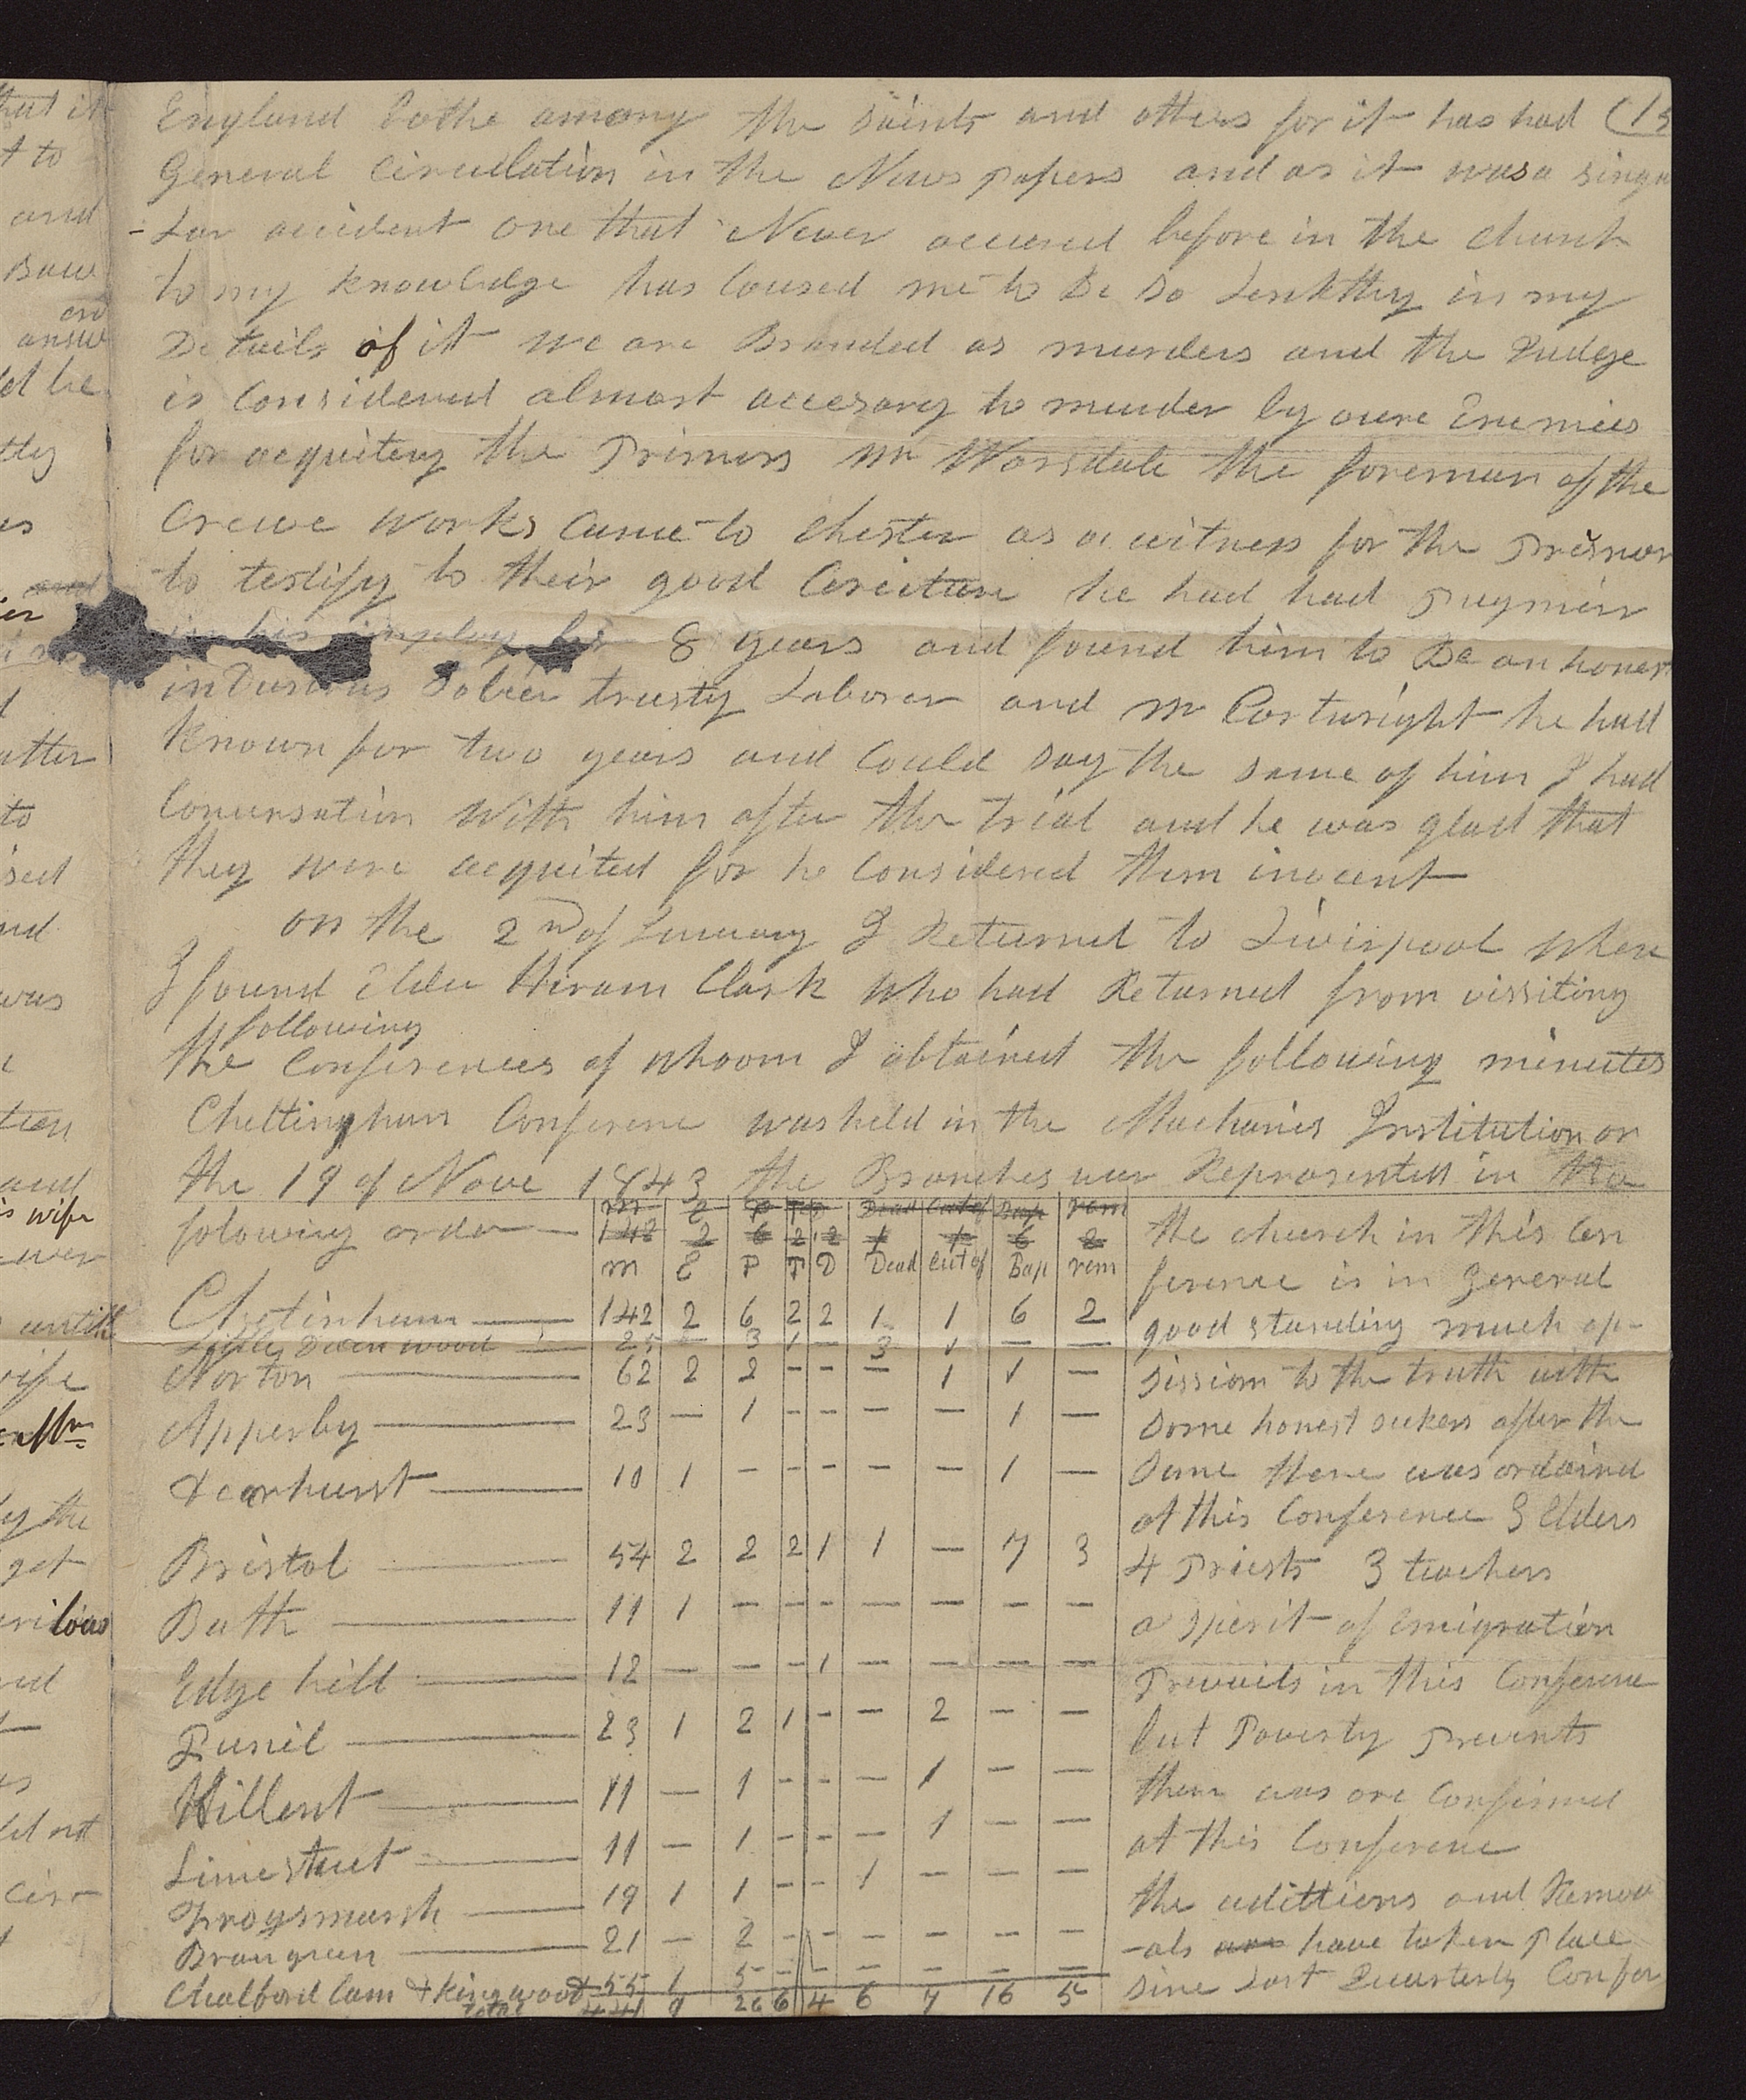 England bothe among the saints and others for it has had (13
General Circulation in the News papers and as it was a singu
-Lar accident one that Never accured before in the church
to my knowledge has Coused me to Be so Lenkthy in my
Details of it we are Branded as murders and the Judge
is Considered almost accesarey to murder by oure Enemies
for acquiteng the Prisners Mr Worsdale the foreman of the
Crewe Works Came to Chester as a witness for the Prisner
to testify to their good Caricture he had had Pugmire
in his imploy for 8 years and found him to Be an honest
indusrous Sober trusty Laborer and Mr Cartwright he had
Known for two years and Could say the same of him I had
Conversation With him after the trial and he was glad that
they were acquited for he Considered them inocent
on the 2nd of January I Returned to Liverpool where
I found Elder Hiram Clark who had Returned from vissiting
following
the Conferences of whoom I obtained the following minutes
Cheltingham Conferene was held in the Machanics Institution on
the 19 of Nove 1843 the Branches wer Represented in the
folowing order —
m E P T D Dead Cut of Bap rem
142 2 6 2 2 1 1 6 2
m E P T D Dead Cut of Bap rem
Cheltinham — 142 2 6 2 2 1 1 6 2
Little Dean wood — 25 — 3 1 — 3 1 — —
Norton — 62 2 2 - - — 1 1 —
Apperley — 23 — 1 - - — — 1 —
Dearhurst — 10 1 — - - — — 1 —
Bristol — 54 2 2 2 1 1 — 7 3
Bath — 11 1 — - - — — — —
Edge hill — 12 — — - 1 — — — —
Punil — 23 1 2 1 - — 2 — —
Hillent — 11 — 1 - - — 1 — —
Lime street — 11 — 1 - - — 1 — —
Frogsmarsh — 19 1 1 - - 1 — — —
Brangreen — 21 — 2 - - — — — —
Chalford Cam & Kingwood 55 1 5 - - — — — —
total 9 26 6 4 6 7 16 5
the church in this Con
ference is in general
good standing much op-
sission to the truth with
some honest seekers after the
same there was ordained
at this Conference 3 Elders
4 Priests 3 teachers
a spirit of emigration
Prevails in this Conferene
but Poverty Prevents
them was one Confirmed
at this Conferene
the adittions and Remov
-als are have taken place
sine Last Quarterly Confer
that it
t to
and
Saw
and
answ
ld he
tly
es
and
d
atter
to
ised
nd
was
tion
and
is wife
ever
untill
wife
by the
get
lous
nd
ld not
Cir-